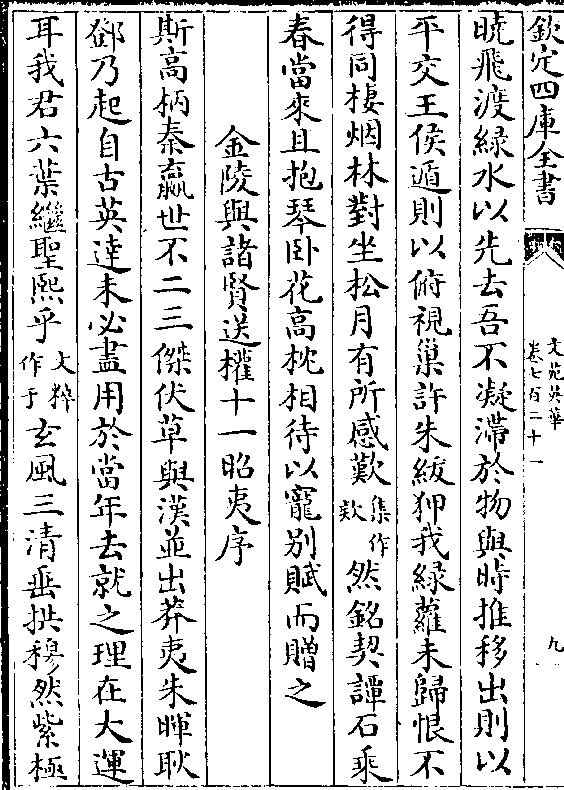 欽定四庫全書
文苑英華
卷七百二十一
九
曉飛渡綠水以先去吾不凝滯於物與時推移出則以
平交王侯遁則以俯視巢許朱紱狎我綠蘿未歸恨不
得同棲烟林對坐松月有所感歎集作欵然銘契譚石乘
春當來且抱琴卧花高枕相待以寵别賦而贈之
金陵與諸賢送權十一昭夷序
斯高柄秦嬴世不二三傑伏草與漢並出莽夷朱暉耿
鄧乃起自古英達未必盡用於當年去就之理在大運
耳我君六葉繼聖熙乎文粹作于玄風三清垂拱穆然紫極